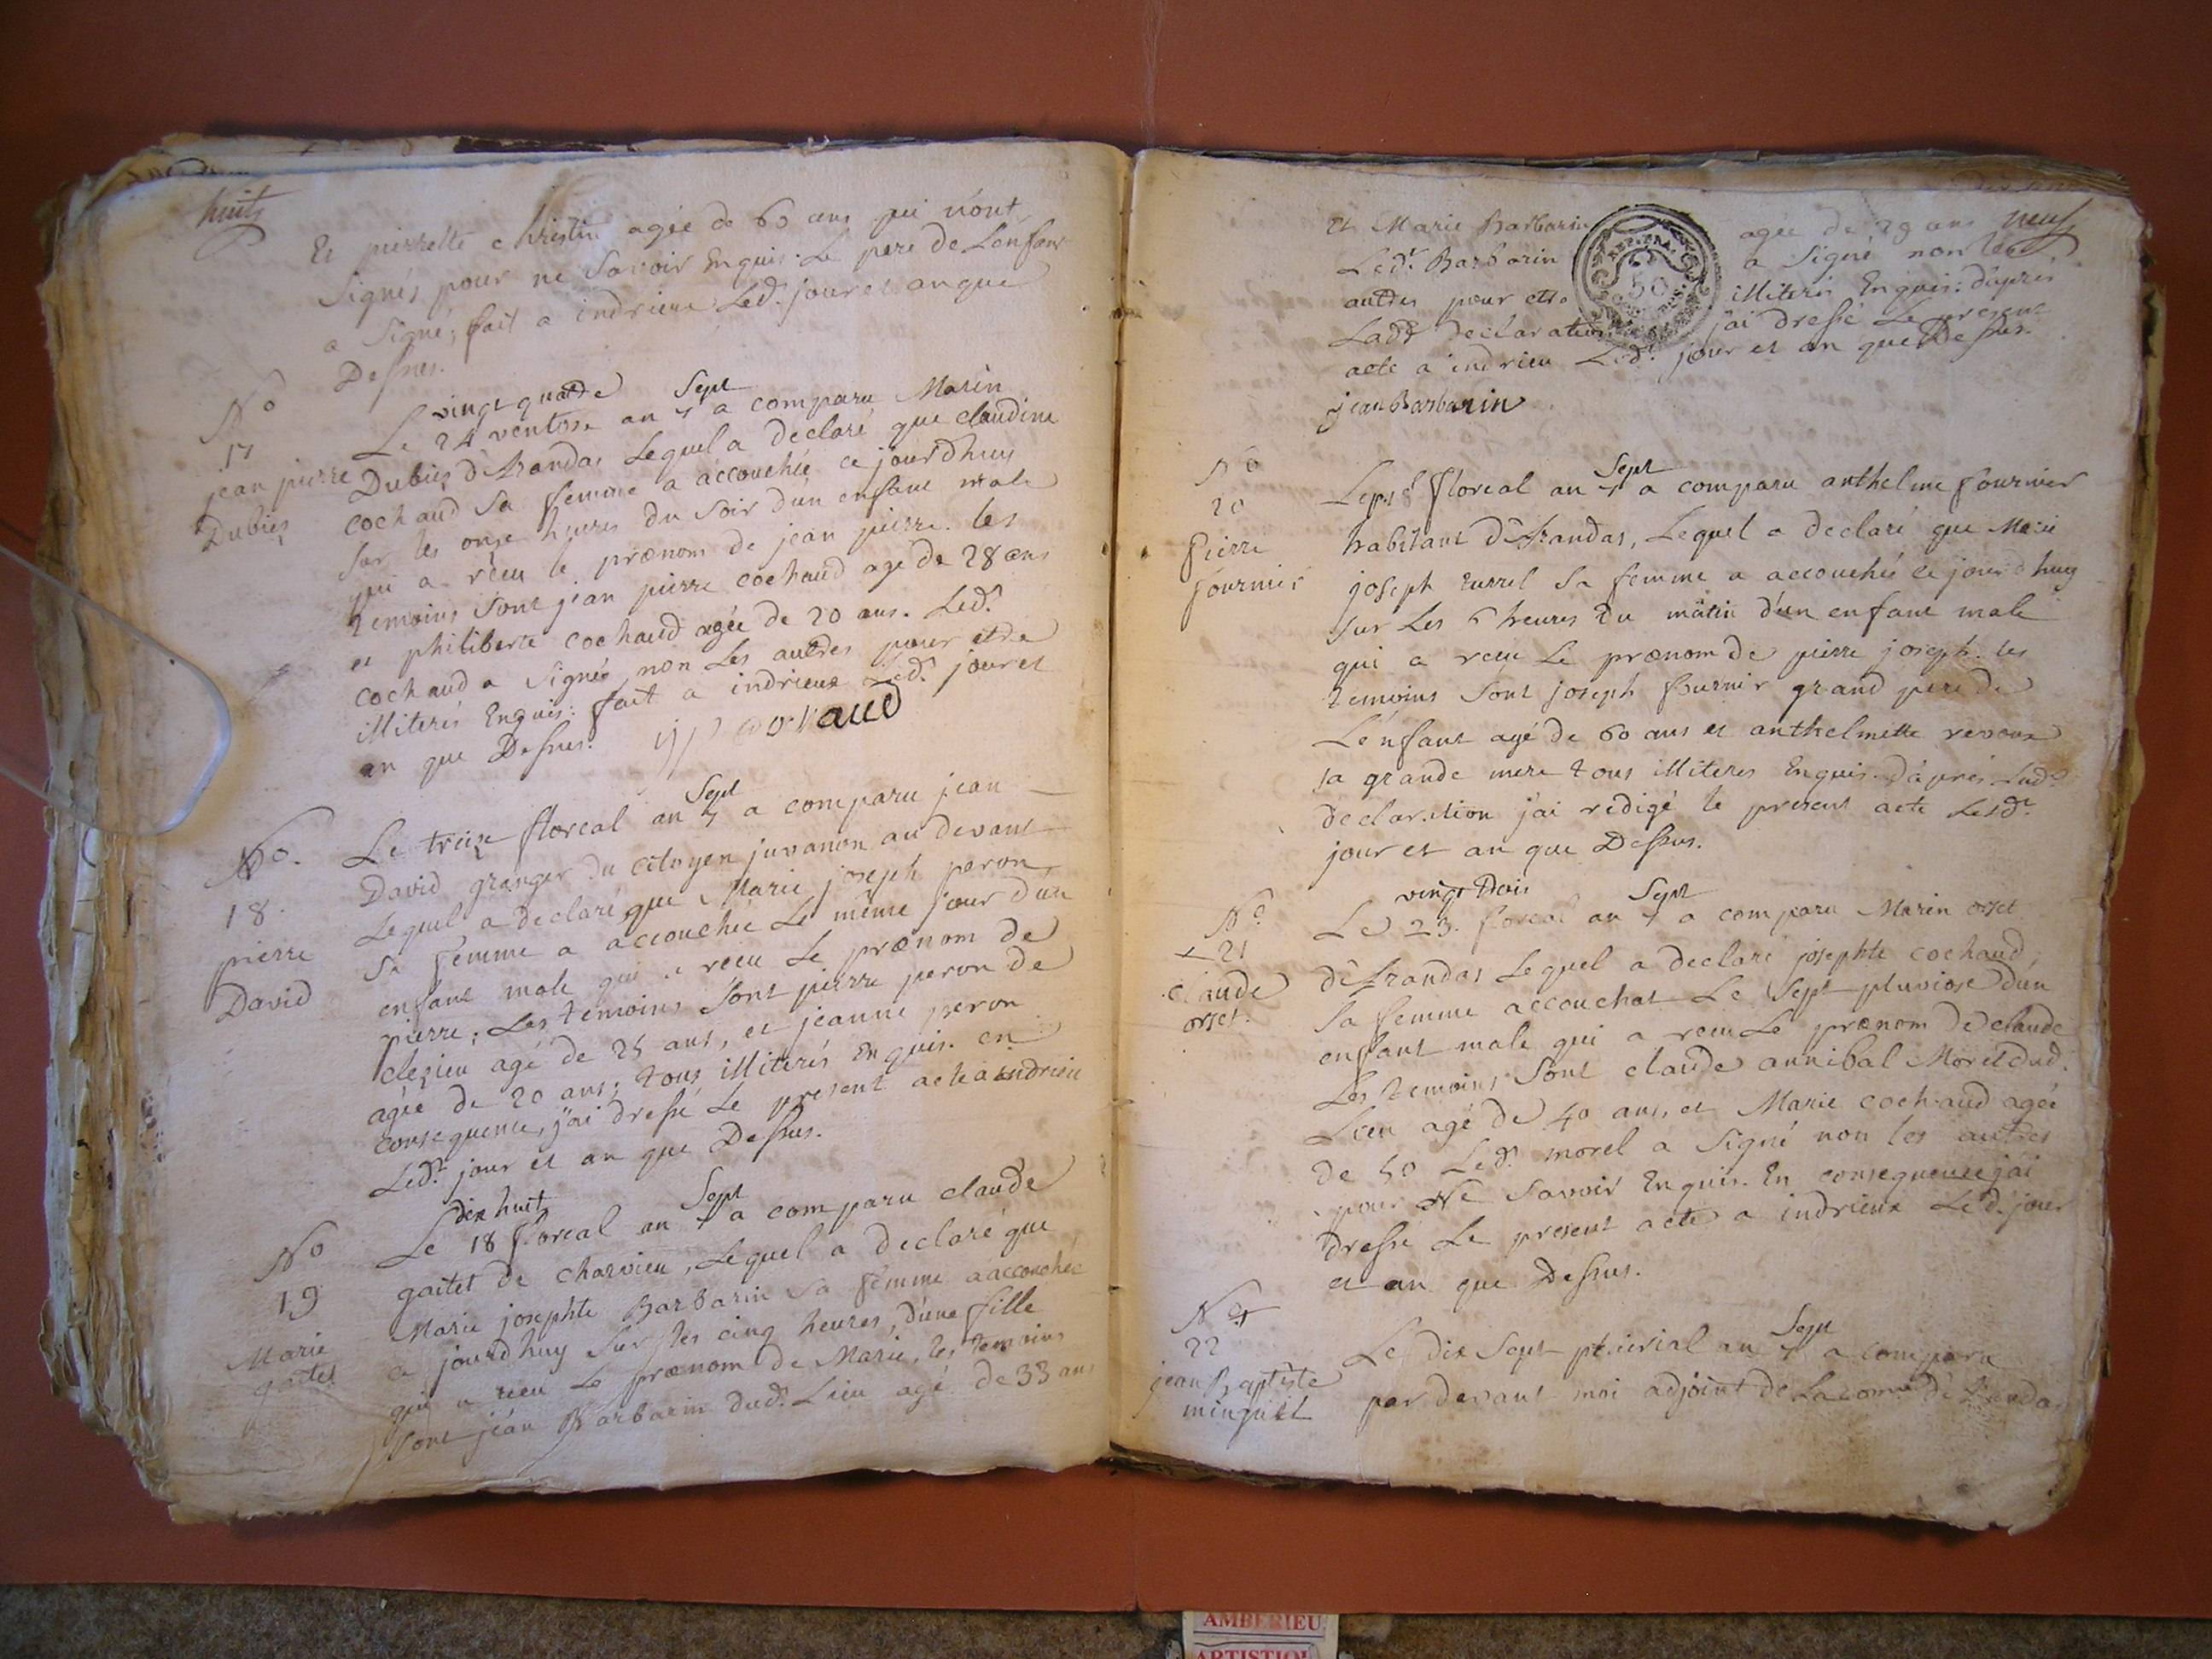 huit
Et pierrette christin agée de 60 ans qui n'ont
signés pour ne savoir Enquis. Le pere de L'enfant
a signé, fait a indrieux Led. jour et an que
Dessus.
No
17
jean pierre
Dubiez
vingt quatre Sept
Le 24 ventose an 7 a comparu Marin
Dubiez d'Arandas Lequel a declaré que claudine
cochaud sa femme a accouchée ce jourd'huy
sur les onze heures du soir d'un enfant male
qui a recu le prœnom de jean pierre. les
temoins sont jean pierre cochaud agé de 28 ans
et philiberte cochaud agée de 20 ans. Led.
cochaud a signé non Les autres pour etre
illiterés Enquis: fait a indrieux Led. jour et
an que Dessus.
No.
18.
pierre
David
Sept
Le treize floreal an 7 a comparu jean
David granger du citoyen juvanon au devant
Lequel a declaré que Marie joseph peron
sa femme a accouchée Le même jour d'un
enfant male qui a recu Le prœnom de
pierre; Les temoins sont pierre peron de
clezieu agé de 25 ans, et jeanne peron
agée de 20 ans; tous illiterés Enquis. en
consequence, j'ai dressé Le present acte a indrieu
Led. jour et an que Dessus.
No
19
Marie
gaitet
dix huit Sept
Le 18 floreal an 7 a comparu claude
gaitet de charvieu, Lequel a declaré que
Marie josephte Barbarin sa femme a accouchée
ce jourd'huy sur les cinq heures, d'une fille
qui a recu Le prœnom de Marie, les temoins
sont jean Barbarin dud. Lieu agé de 33 ans
neuf
Et Marie Barbarin agée de 29 ans
Led. Barbarin a signé non les
autres pour etre illiterés Enquis: d'après
Ladd declaration j'ai dressé Le present
acte a indrieu Led. jour et an que Dessus.
jean Barbarin
REP. FRA.
50
No
20
Pierre
fournier
Sept
floreal an 7 a comparu anthelme fournier
habitant d'Arandas, Lequel a declaré que Marie
joseph sa femme a accouchée ce jourd'huy
sur Les 6 heures du matin d'un enfant male
qui a recu Le prœnom de pierre joseph. les
temoins sont joseph fournier grand pere de
L'enfant agé de 60 ans et anthelmette revoux
sa grande mere tous illiteres Enquis. D'après Lad.
declaration j'ai redigé le present acte Lesd.
jour et an que Dessus.
No
21
claude
orset.
vingt trois Sept
Le 23. floreal an 7 a comparu Marin orset
d'Arandas Lequel a declaré josephte cochaud,
sa femme accouchat Le sept pluviose d'un
enfant male qui a recu Le prœnom de claude
Les temoins sont claude annibal Morel dud.
Lieu agé de 40 ans, et Marie cochaud agée
de 50 Led. morel a signé non les autres
pour Ne savoir Enquis. En consequence j'ai
dressé Le present acte a indrieux Led. jour
et an que Dessus.
No
22
jean Baptiste
minguet
Sept
Le dix sept prairial an 7 a comparu
par devant moi adjoint de La comne d'Arandas
AMBERIEU